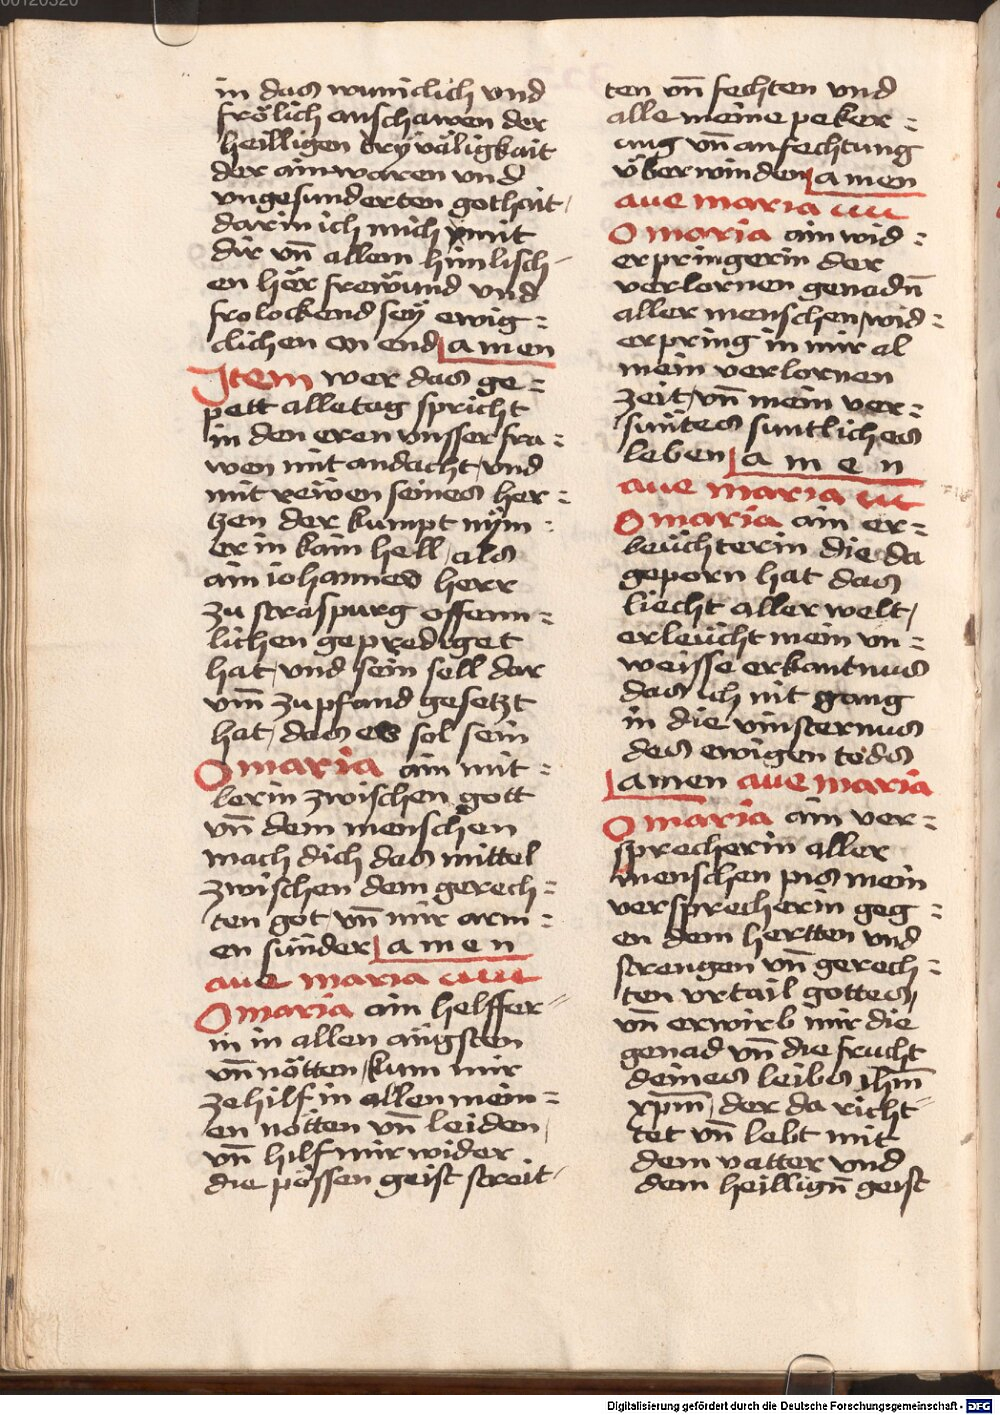 00120320
in das wunniclich vnd
frölich anschawen der
heilligen dryväligkait
der ainwaren vnd
vngesunderten gothait /
darin ich mich mit
dir vn̄ allem himlisch-
en hër frewund vnd
frolockend sey ewig=
clichen on end amen
Item wer das ge=
pett alle tag spricht
in den eren vnsser fra=
wen mit andacht / vnd
mit rewen seines her=
tzen der kumpt nym=
er in kain hell / als
ain iohannes herr
zu straspurg offenn=
lichen geprediget
hat / vnd sein sell dar
vm̄ zu pfand gesetzt
hat / das es sol sein
O maria ain mit=
lerin zwischen gott
vn̄ dem menschen
mach dich das mittel
zwischen dem gerech=
ten got / vn̄ mir arm=
en sünder amen
aue maria
O maria ain helffer=
in in allen ängsten
vn̄ nötten / kum mir
ze hilf in allen mein=
en nötten vn̄ leiden /
vn̄ hilf mir wider
die pössen geist streit-
ten vn̄ fechten vnd
alle meine peker=
ung vn̄ anfechtung
überwinden amen
aue maria
O maria ain wid=
erpringerin der
verlornen genadn̄
aller menschen / wid=
erpring in mir al
mein verlornen
zeit / vn̄ mein ver=
suntes suntliches
leben amen
aue maria
O maria ain er=
leüchterin die da
geporn hat das
liecht aller welt /
erleücht mein vn=
weisse erkantnus
das ich nit gang
in die vinsternus
des ewigen todes
amen aue maria
O maria ain ver=
sprecherin aller
menschen pis mein
versprecherin geg=
en dem hertten vnd
strengen vn̄ gerech=
ten vrtail gottes /
vn̄ erwirb mir die
genad vn̄ die frucht
deines leibs ihm̄
xpm̄ / der da richt-
tet vn̄ lebt mit
dem vatter vnd
dem heillign̄ geist
Digitalisierung gefördert durch die Deutsche Forschungsgemeinschaft - DFG